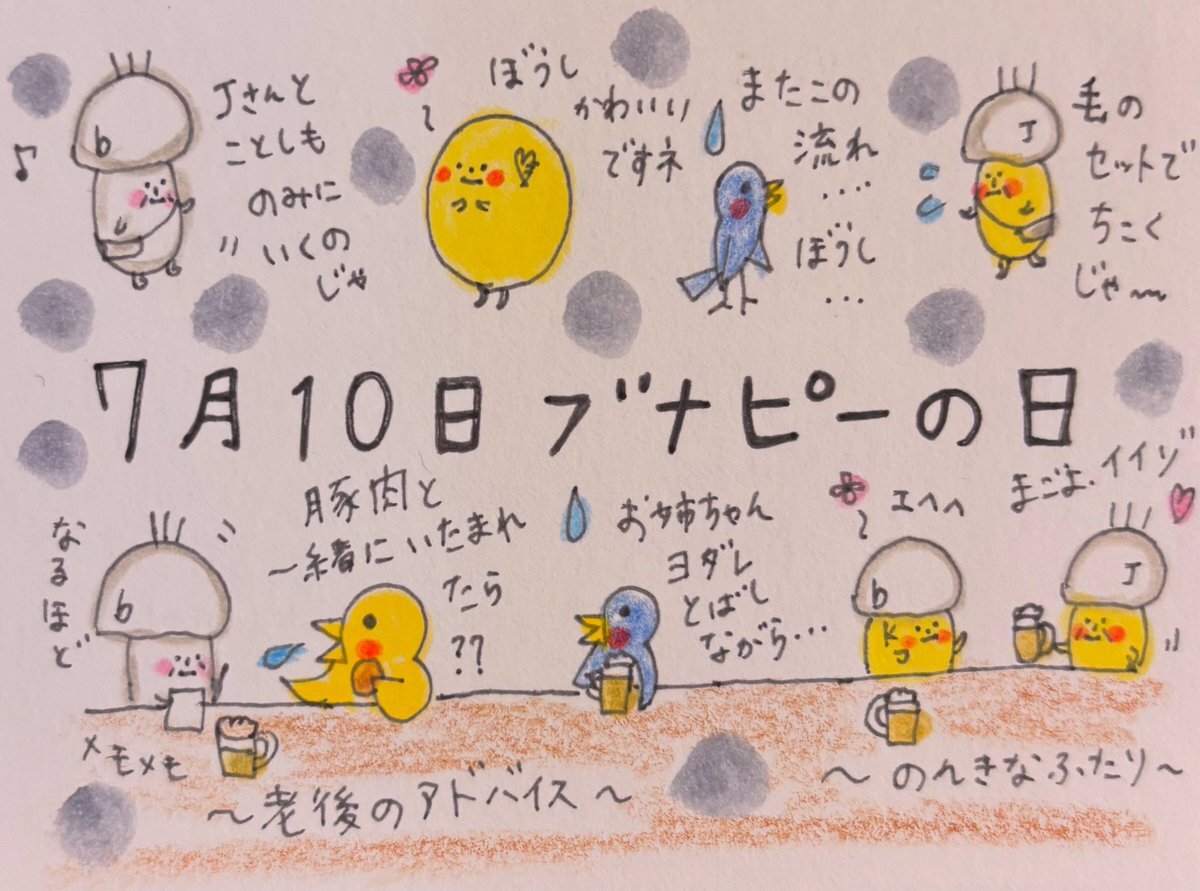 b
Jさんと
ことしも
のみに
いくの
じゃ
ぼうし
かわいい
ですネ
またこの
流れ
....
ぼうし
...
J
毛の
セットで
ちこく
じゃ〜
7月10日 ブナピーの日
なるほど
b
メモメモ
豚肉と
一緒にいたまれ
たら
??
お姉ちゃん
ヨダレ
とばし
ながら...
〜老後のアドバイス〜
エヘヘ
b
K
J
まごよ、イイゾ
J
〜のんきなふたり〜